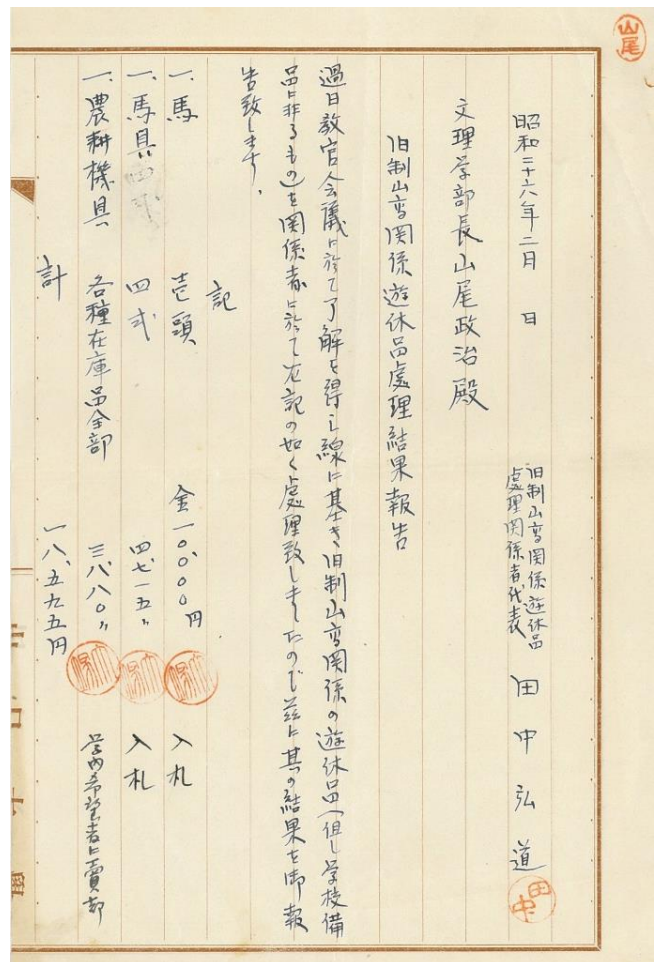 山尾
昭和二十六年二月　日
旧制山高関係遊休品
処理関係者代表
田中弘道
田中
文理学部長山尾政治殿
旧制山高関係遊休品處理結果報告
過日教官会議に於て了解を得し線に基き旧制山高関係の遊休品(但し学校備
品に非るもの)を関係者に於て左記の如く處理致しましたので茲に其の結果を御報
告致します、
記
一、馬　壱頭　金一〇、〇〇〇円　入札
一、馬具　四式　四、七一五〃　入札
一、農耕機具　各種在庫品全部　三、八八〇〃　学内希望者に賣却
計　一八、五九五円